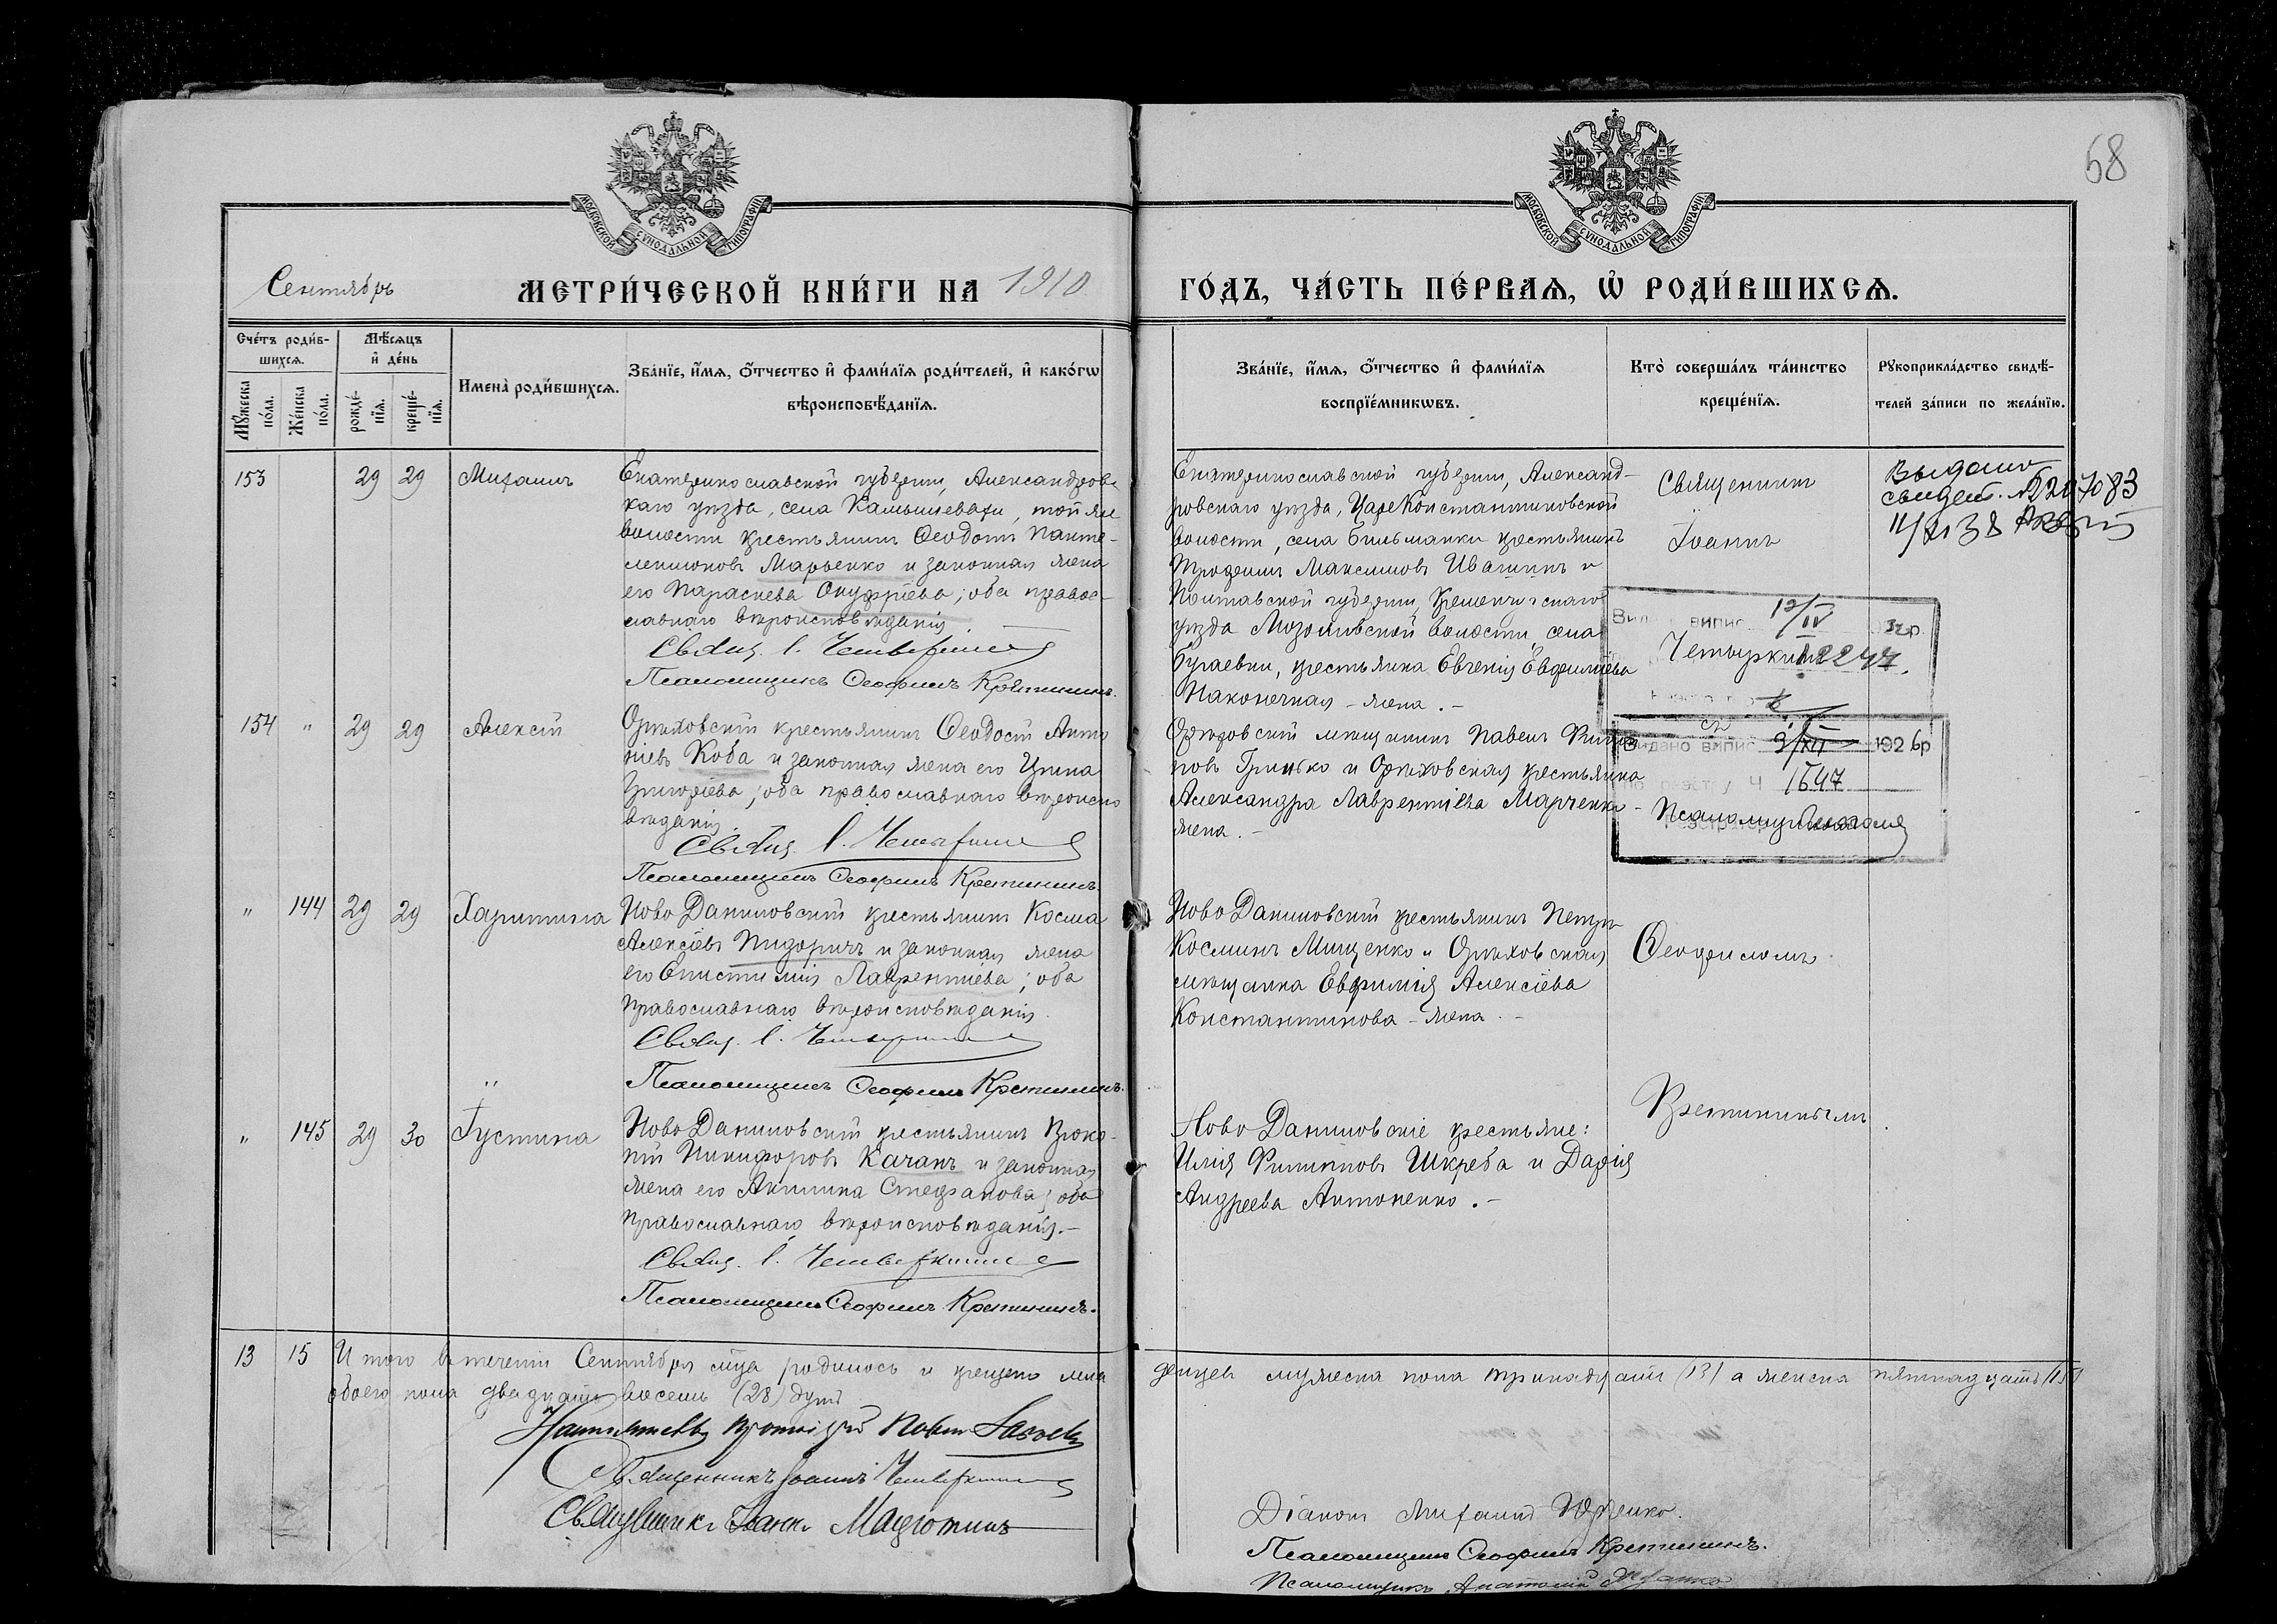 68
МОСКОВСКОЙ СѴНОДАЛЬНОЙ ТИПОГРАФІИ
МОСКОВСКОЙ СѴНОДАЛЬНОЙ ТИПОГРАФІИ
Сентябрь
МЕТРИ́ЧЕСКОЙ КНИ́ГИ НА 1910
ГО́ДЪ, ЧА́СТЬ ПЕ́РВАЯ, Ѡ҆ РОДИ́ВШИХСЯ.
Сче́тъ роди́в-
шихся.
Мꙋ́жеска по́ла.
Же́нска по́ла.
Мѣ́сяцъ
и҆ де́нь
рожде́-
нїя.
креще́-
нїя.
Имена̀ роди́вшихся.
Зва́нїе, и҆́мя, ѻ҆́тчество и҆ фами́лїя роди́телей, и҆ како́гѡ
вѣроисповѣ́данїя.
Зва́нїе, и҆́мя, ѻ҆́тчество и҆ фами́лїя
воспрїе́мникѡвъ.
Кто̀ соверша́лъ та́инство
креще́нїя.
Рꙋкоприкла́дство свидѣ́-
телей за́писи по жела́нїю.
153
29 29
Михаилъ
Екатеринославской губерніи, Александровс-
каго уѣзда, села Камышевахи, той же
волости крестьянинъ Ѳеодотъ Панте-
леимоновъ Марченко и законная жена
его Параскева Онуфріева; оба правос-
лавнаго вѣроисповѣданія.
Свящ. І. Четыркинъ
Псаломщикъ Ѳеофилъ Кретининъ.
Екатеринославской губерніи, Александ-
ровскаго уѣзда, ЦареКонстантиновской
волости, села Бильманки крестьянинъ
Трофимъ Максимовъ Ивашинъ и
Полтавской губерніи, Кременчугскаго
уѣзда Мозолѣвской волости, села
Бугаевки, крестьянка Евгенія Евфиміева
Наконечная - жена. -
Священникъ
Іоаннъ
Четыркинъ
Выдано
свидет. № 2207083
154 " 29 29
Алексій
Орѣховскій крестьянинъ Ѳеодосій Анто-
ніевъ Коба и законная жена его Ирина
Григоріева; оба православнаго вѣроиспо-
вѣданія.
Свящ. І. Четыркинъ
Псаломщикъ Ѳеофилъ Кретининъ.
Орѣховскій мѣщанинъ Павелъ Филип-
повъ Гринько и Орѣховская крестьянка
Александра Лаврентіева Марченко -
жена. -
випис 12/IV 32р.
12247
съ
Видано випис 9/XII 1926р
по реєстру Ч 1547
Псаломщикомъ
" 144 29 29
Харитина
НовоДаниловскій крестьянинъ Косма
Алексіевъ Пидоричъ и законная жена
его Епистимія Лаврентіева; оба
православнаго вѣроисповѣданія.
Свящ. І. Четыркинъ
Псаломщикъ Ѳеофилъ Кретининъ.
НовоДаниловскій крестьянинъ Петръ
Косминъ Мищенко и Орѣховская
мѣщанка Евфимія Алексіева
Константинова - жена. -
Ѳеофиломъ
" 145 29 30
Іустина
НовоДаниловскій крестьянинъ Проко-
пій Никифоровъ Качанъ и законная
жена его Акилина Стефанова; оба
православнаго вѣроисповѣданія. -
Свящ. І. Четыркинъ
Псаломщикъ Ѳеофилъ Кретининъ.
НовоДаниловскіе крестьяне:
Илія Филипповъ Шкреба и Дарія
Андреева Антоненко. -
Кретининымъ.
13 15 Итого въ теченіи Сентября мѣсяца родилось и крещено мла
денцевъ мужеска пола тринадцать (13) а женска пятнадцать (15)
обоего пола двадцать восемь (28) душъ
Священникъ Іоаннъ Четыркинъ
Священникъ Іоаннъ
Діаконъ Михаилъ Юренко.
Псаломщикъ Ѳеофилъ Кретининъ.
Псаломщикъ Анатолій